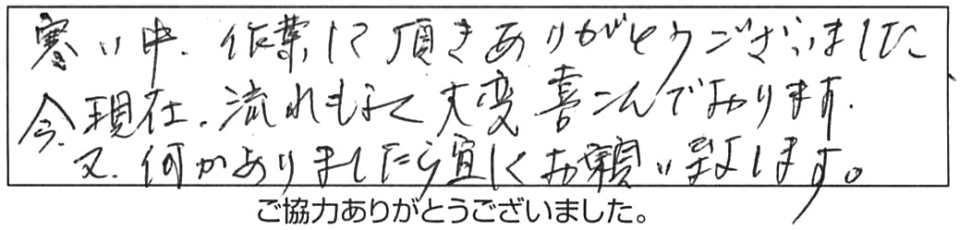 寒い中、作業して頂きありがとうございました
今現在、流れもよく大変喜こんでおります。
又、何かありましたら宜しくお願い致します。
ご協力ありがとうございました。